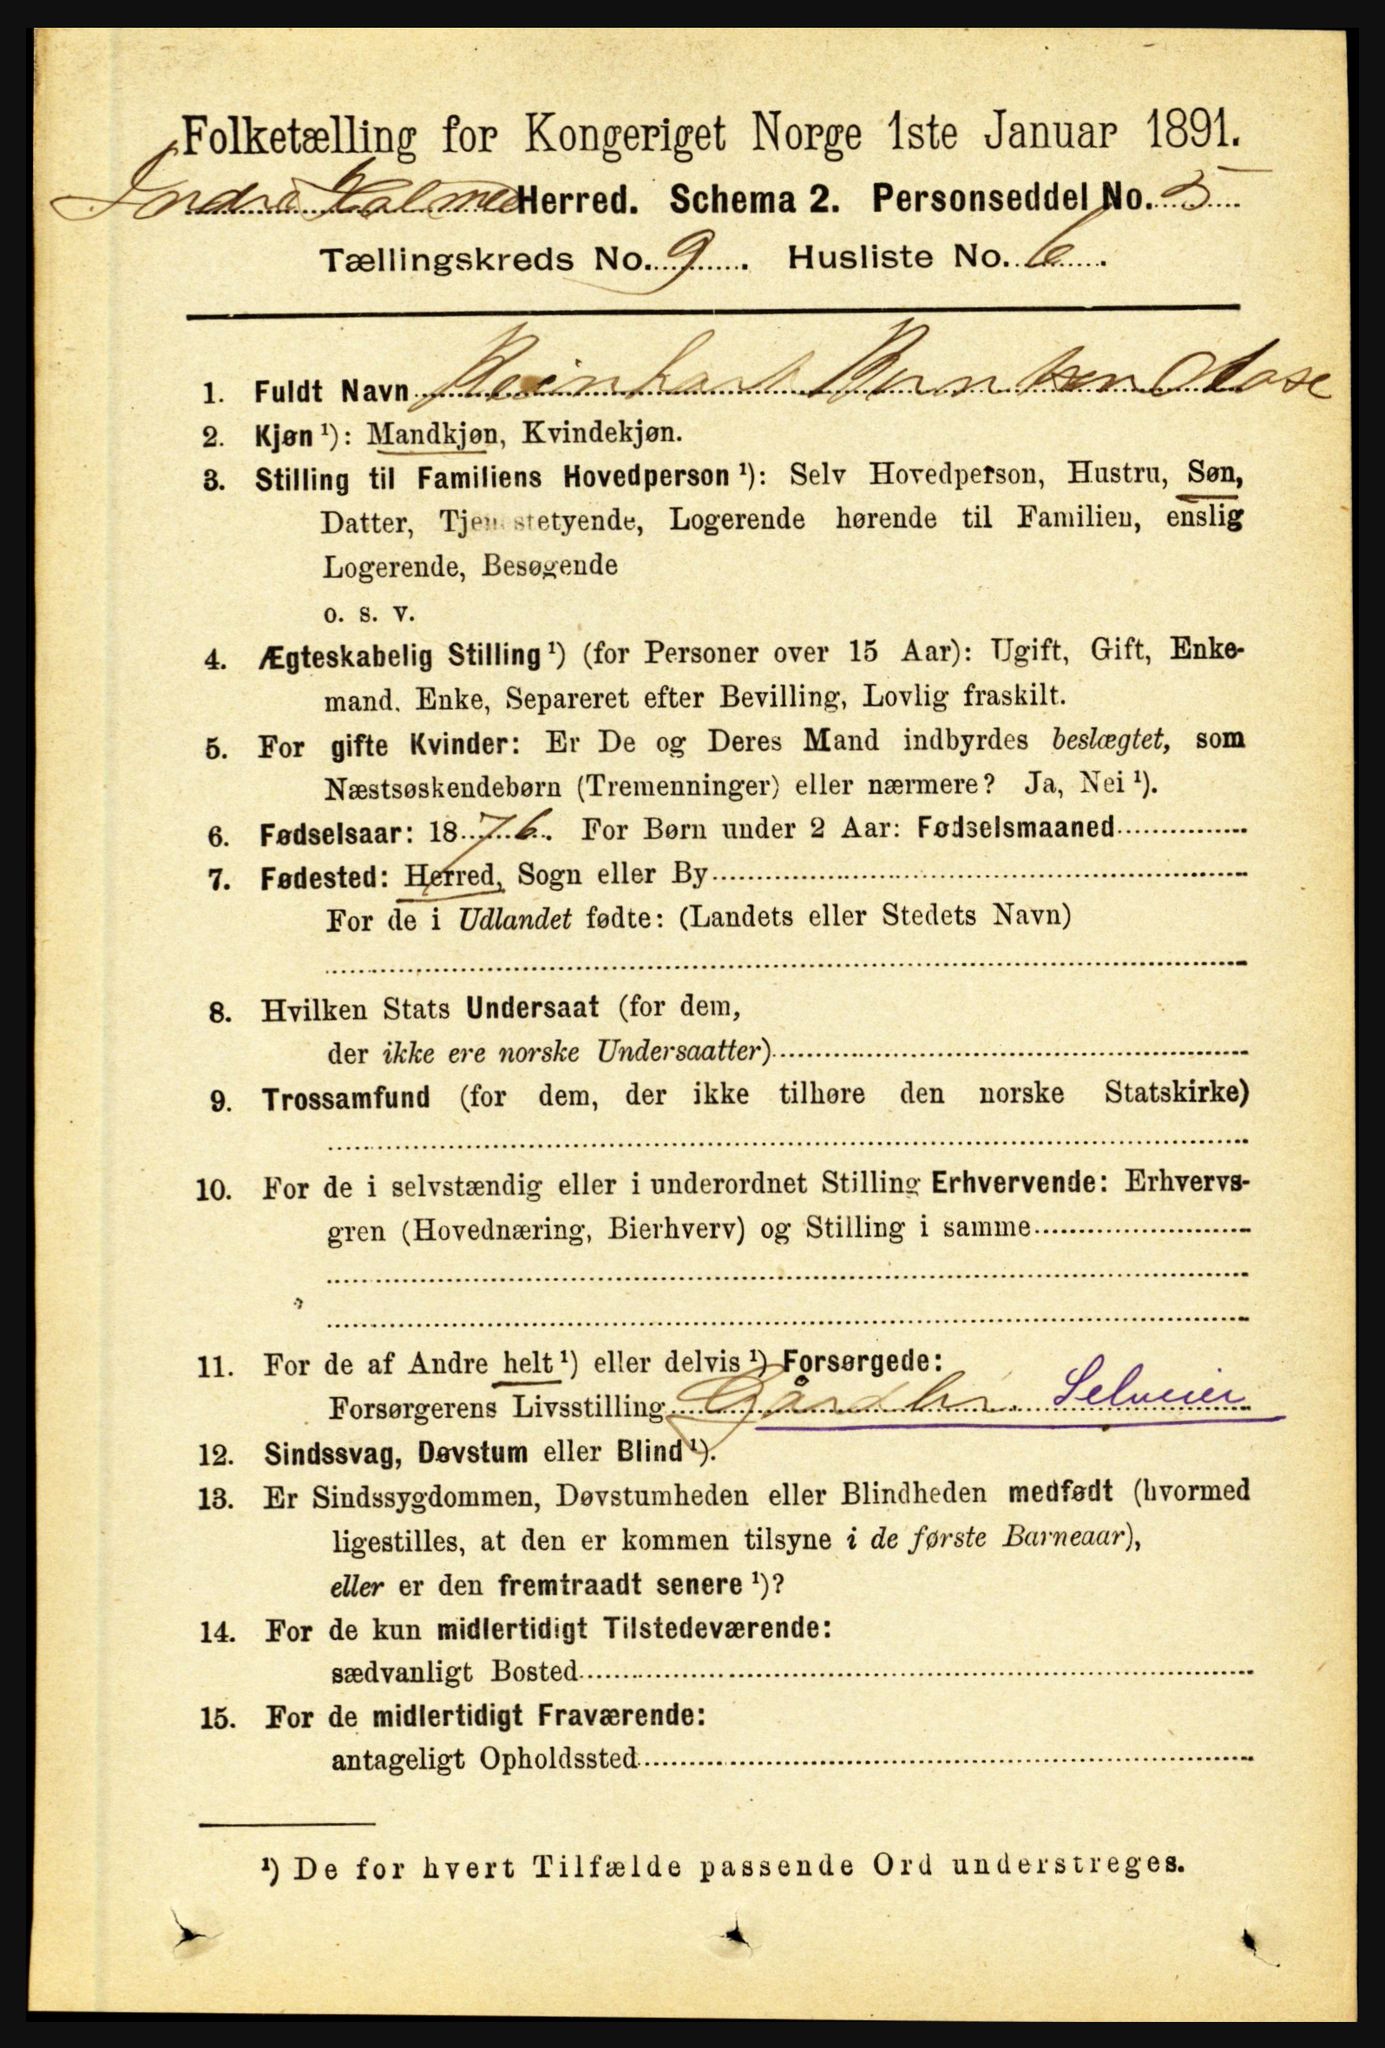 Folketælling for Kongeriget Norge 1ste Januar 1891.
Indre Holmedal Herred. Schema 2. Personseddel No. 5
Tællingskreds No. 9. Husliste No. 6.
1. Fuldt Navn Reinhart Berntsen Aase
2. Kjøn ¹): Mandkjøn, Kvindekjøn.
3. Stilling til Familiens Hovedperson ¹): Selv Hovedperson, Hustru, Søn,
Datter, Tjenestetyende, Logerende hørende til Familien, enslig
Logerende, Besøgende
o. s. v.
4. Ægteskabelig Stilling ¹) (for Personer over 15 Aar): Ugift, Gift, Enke-
mand. Enke, Separeret efter Bevilling, Lovlig fraskilt.
5. For gifte Kvinder: Er De og Deres Mand indbyrdes beslægtet, som
Næstsøskendebørn (Tremenninger) eller nærmere? Ja, Nei ¹).
6. Fødselsaar: 1876. For Børn under 2 Aar: Fødselsmaaned
7. Fødested: Herred, Sogn eller By
For de i Udlandet fødte: (Landets eller Stedets Navn)
8. Hvilken Stats Undersaat (for dem,
der ikke ere norske Undersaatter)
9. Trossamfund (for dem, der ikke tilhøre den norske Statskirke)
10. For de i selvstændig eller i underordnet Stilling Erhvervende: Erhvervs-
gren (Hovednæring, Bierhverv) og Stilling i samme
11. For de af Andre helt ¹) eller delvis ¹) Forsørgede:
Forsørgerens Livsstilling Gårdbr. Selveier
12. Sindssvag, Døvstum eller Blind ¹).
13. Er Sindssygdommen, Døvstumheden eller Blindheden medfødt (hvormed
ligestilles, at den er kommen tilsyne i de første Barneaar),
eller er den fremtraadt senere ¹)?
14. For de kun midlertidigt Tilstedeværende:
sædvanligt Bosted
15. For de midlertidigt Fraværende:
antageligt Opholdssted
¹) De for hvert Tilfælde passende Ord understreges.